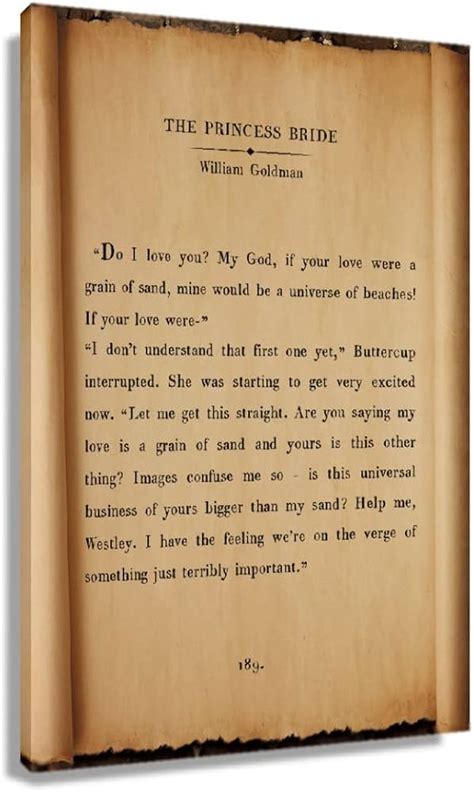 THE PRINCESS BRIDE
William Goldman
“Do I love you? My God, if your love were a
grain of sand, mine would be a universe of beaches!
If your love were-”
“I don’t understand that first one yet,” Buttercup
interrupted. She was starting to get very excited
now. “Let me get this straight. Are you saying my
love is a grain of sand and yours is this other
thing? Images confuse me so - is this universal
business of yours bigger than my sand? Help me,
Westley. I have the feeling we’re on the verge of
something just terribly important.”
189.